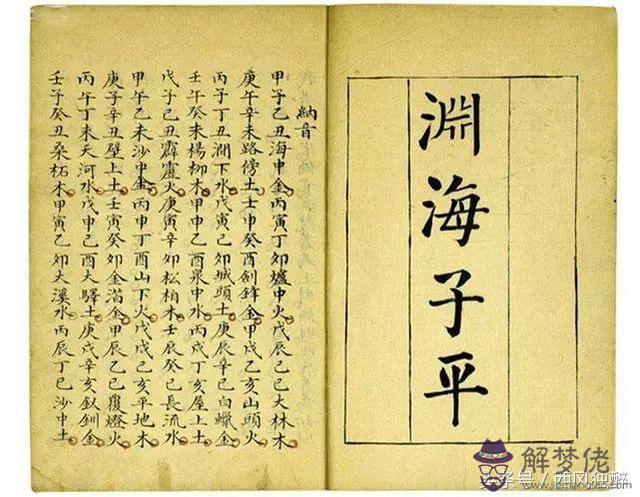 淵海子平
納音
甲子乙丑海中金丙寅丁卯爐中火戊辰己巳大林木
庚午辛未路傍土壬申癸酉劍鋒金甲戌乙亥山頭火
丙子丁丑澗下水戊寅己卯城頭土庚辰辛巳白蠟金
壬午癸未楊柳木甲申乙酉泉中水丙戌丁亥屋上土
戊子己丑霹靂火庚寅辛卯松柏木壬辰癸巳長流水
甲午乙未沙中金丙申丁酉山下火戊戌己亥平地木
庚子辛丑壁上土壬寅癸卯金箔金甲辰乙巳覆燈火
丙午丁未天河水戊申己酉大驛土庚戌辛亥釵釧金
壬子癸丑桑柘木甲寅乙卯大溪水丙辰丁巳沙中土
解梦佬
头条号/西风独醉